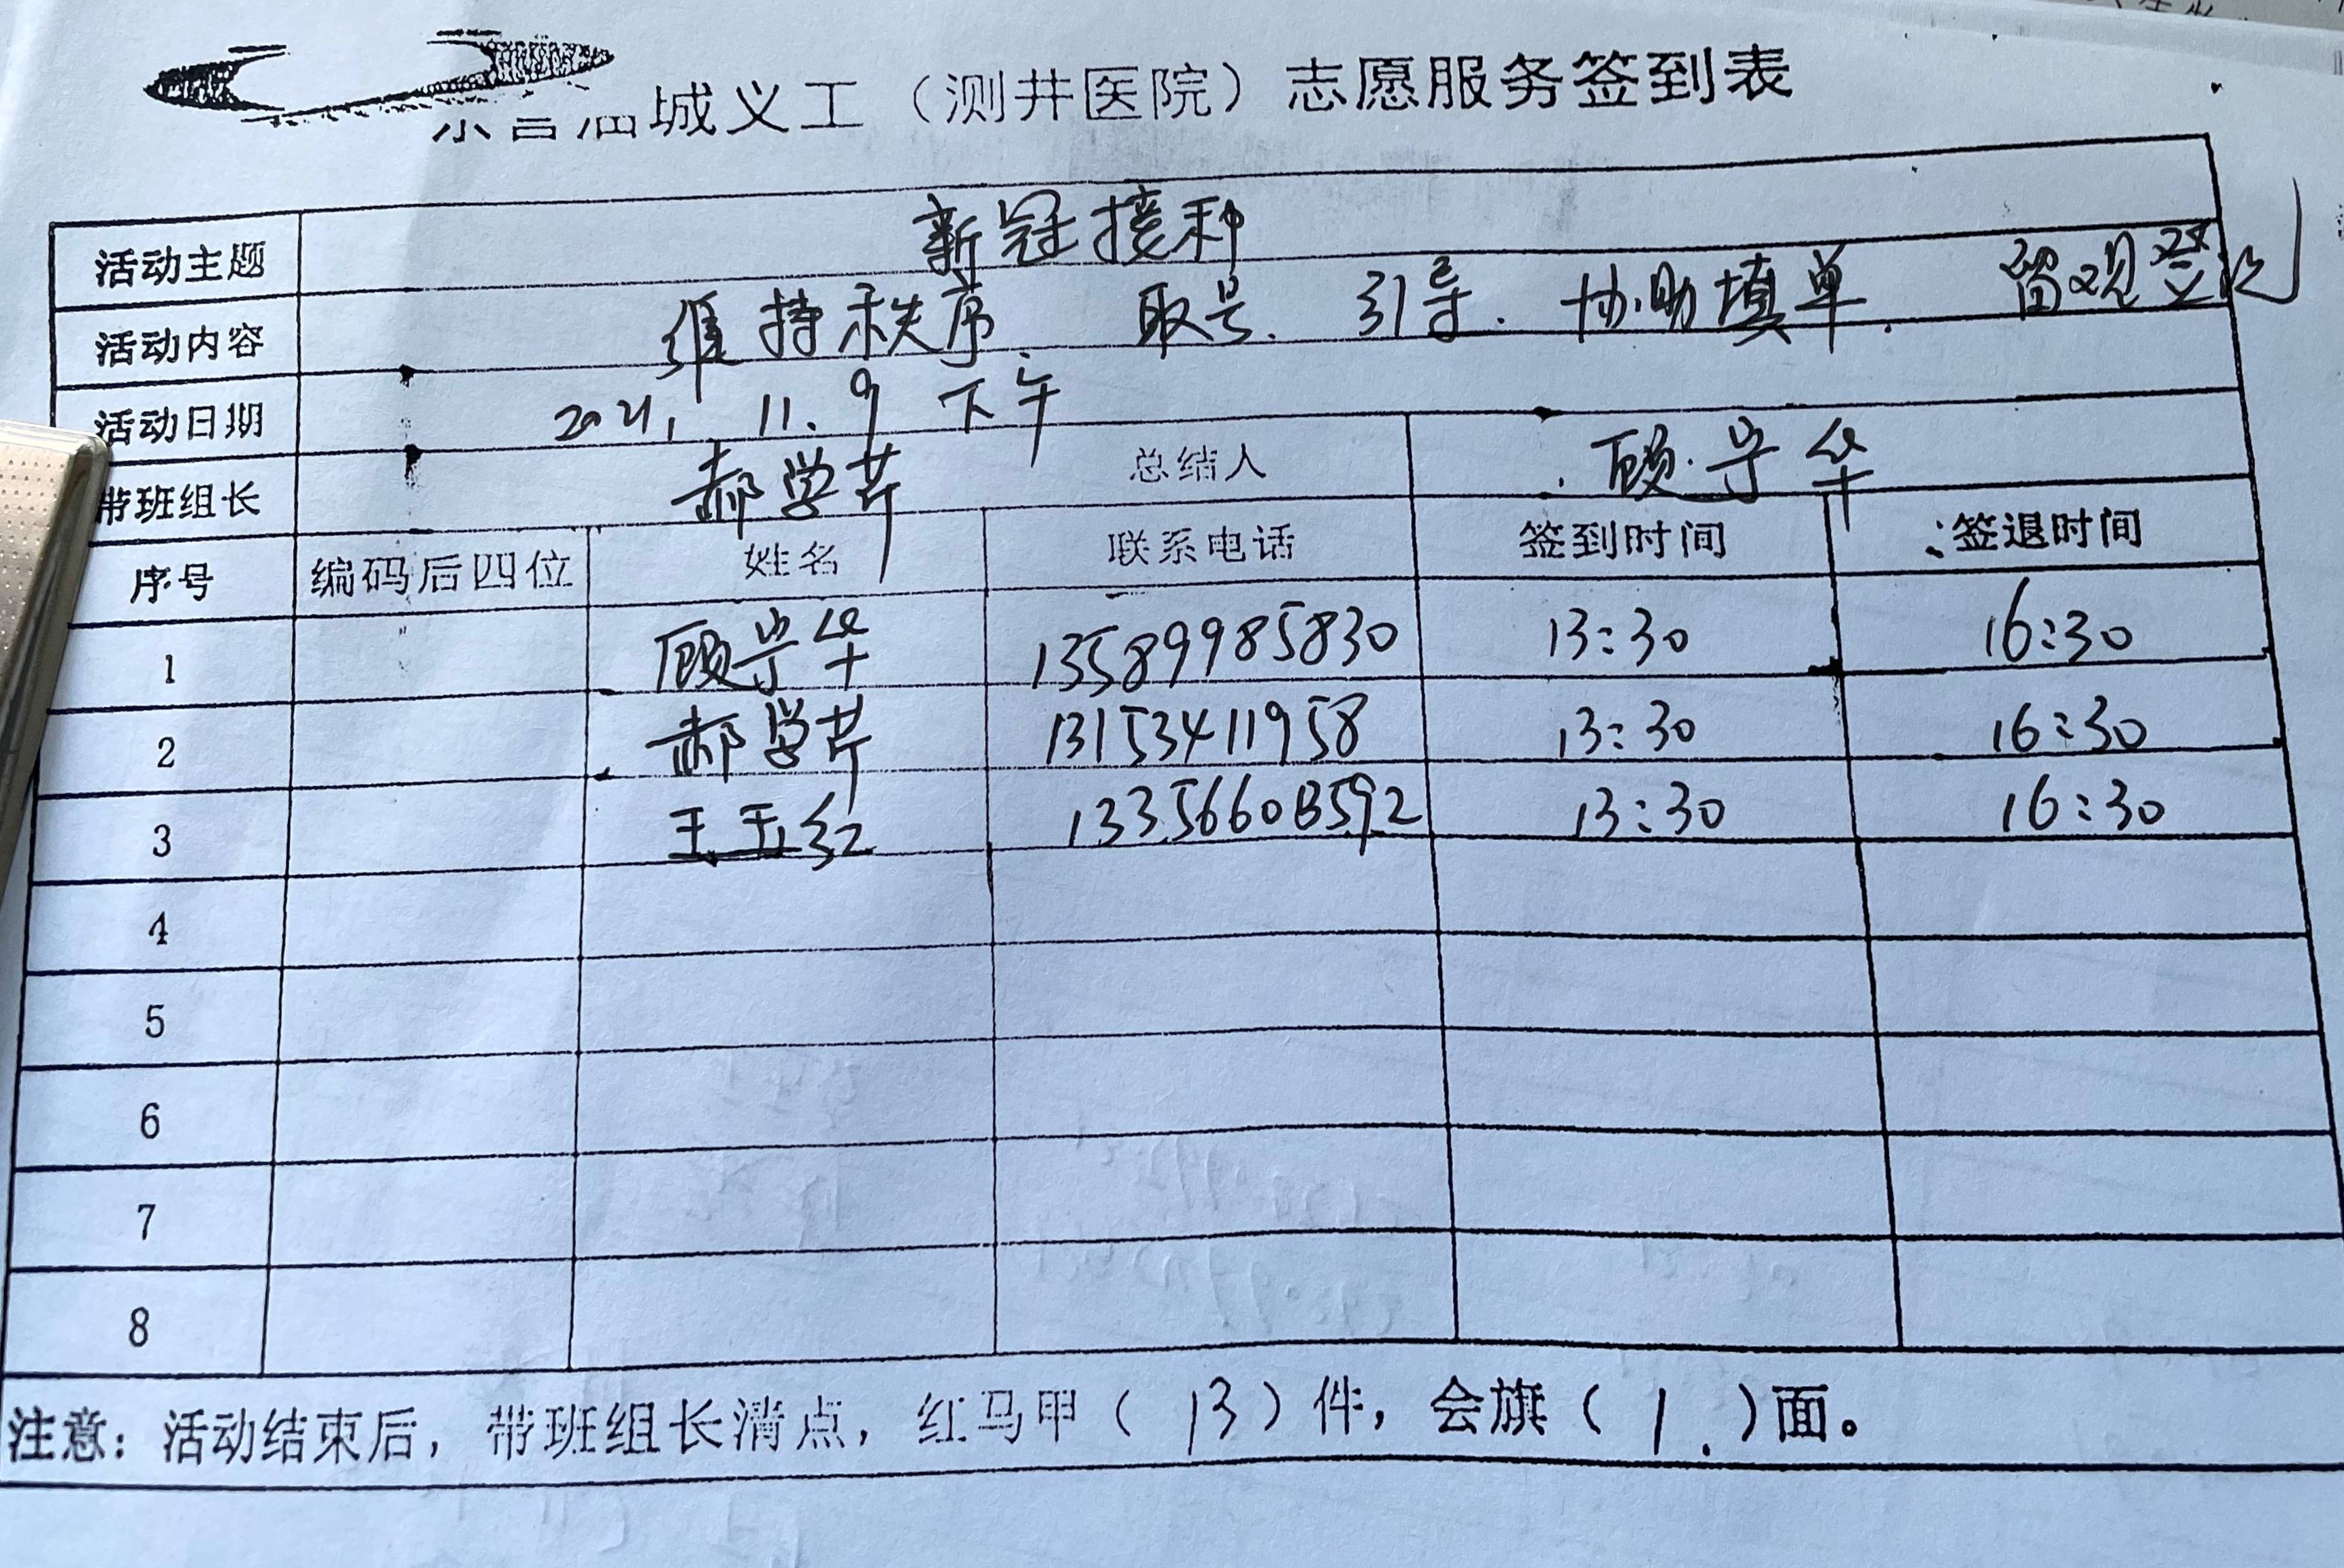 城义工（测井医院）志愿服务签到表
活动主题 新冠接种
活动内容 维持秩序、取号、引导、协助填单、留观登记
活动日期 2021, 11.9下午
带班组长 郝学芹 总结人 顾守华
序号 编码后四位 姓名 联系电话 签到时间 签退时间
1 顾守华 13589985830 13:30 16:30
2 郝学芹 13153411958 13:30 16:30
3 王玉红 13356603592 13:30 16:30
4
5
6
7
8
注意：活动结束后，带班组长清点，红马甲（13）件，会旗（1.）面。